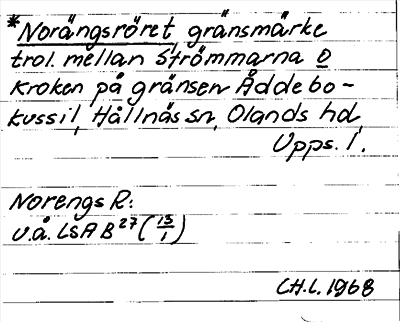 *Norängsröret, gränsmärke
trol. mellan Strömmarna o
Kroken på gränsen Åddebo-
kussil, Hållnäs sn, Olands hd,
Upps. l.
Norengs R:
u.å. LSA B 27 (15/1)
CH.L. 1968